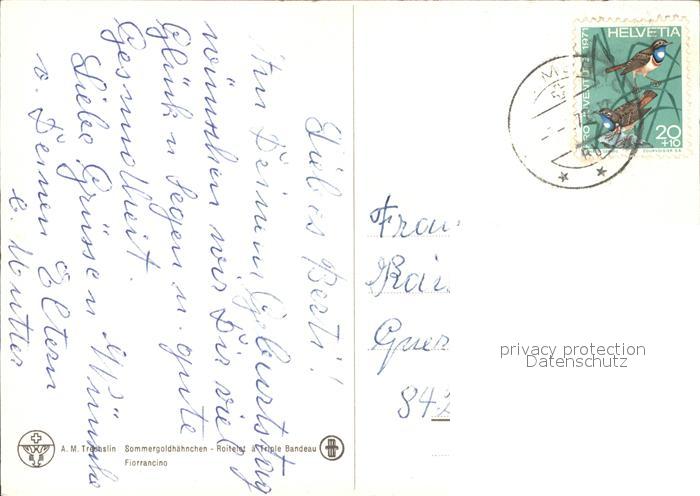 Liebes Berti!
An Deinem Geburtstag
wünschen wir Dir viel
Glück u Segen u. gute
Gesundheit.
Liebe Grüsse u Wünsche
v. Deinen Eltern
u. Mutter
Frau
Guer
842
HELVETIA
1971
20
+10
COURVOISIER S.A.
privacy protection
Datenschutz
A. M. Trechslin Sommergoldhähnchen - Roitelet à Triple Bandeau
Fiorrancino